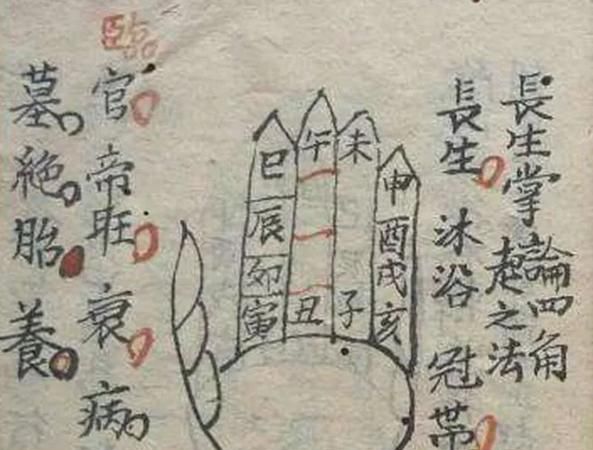 長生掌
論四角
起之法
長生 沐浴 冠帶
臨官 帝旺 衰 病
墓 絶 胎 養
巳辰卯寅
午丑
未子
申酉戌亥